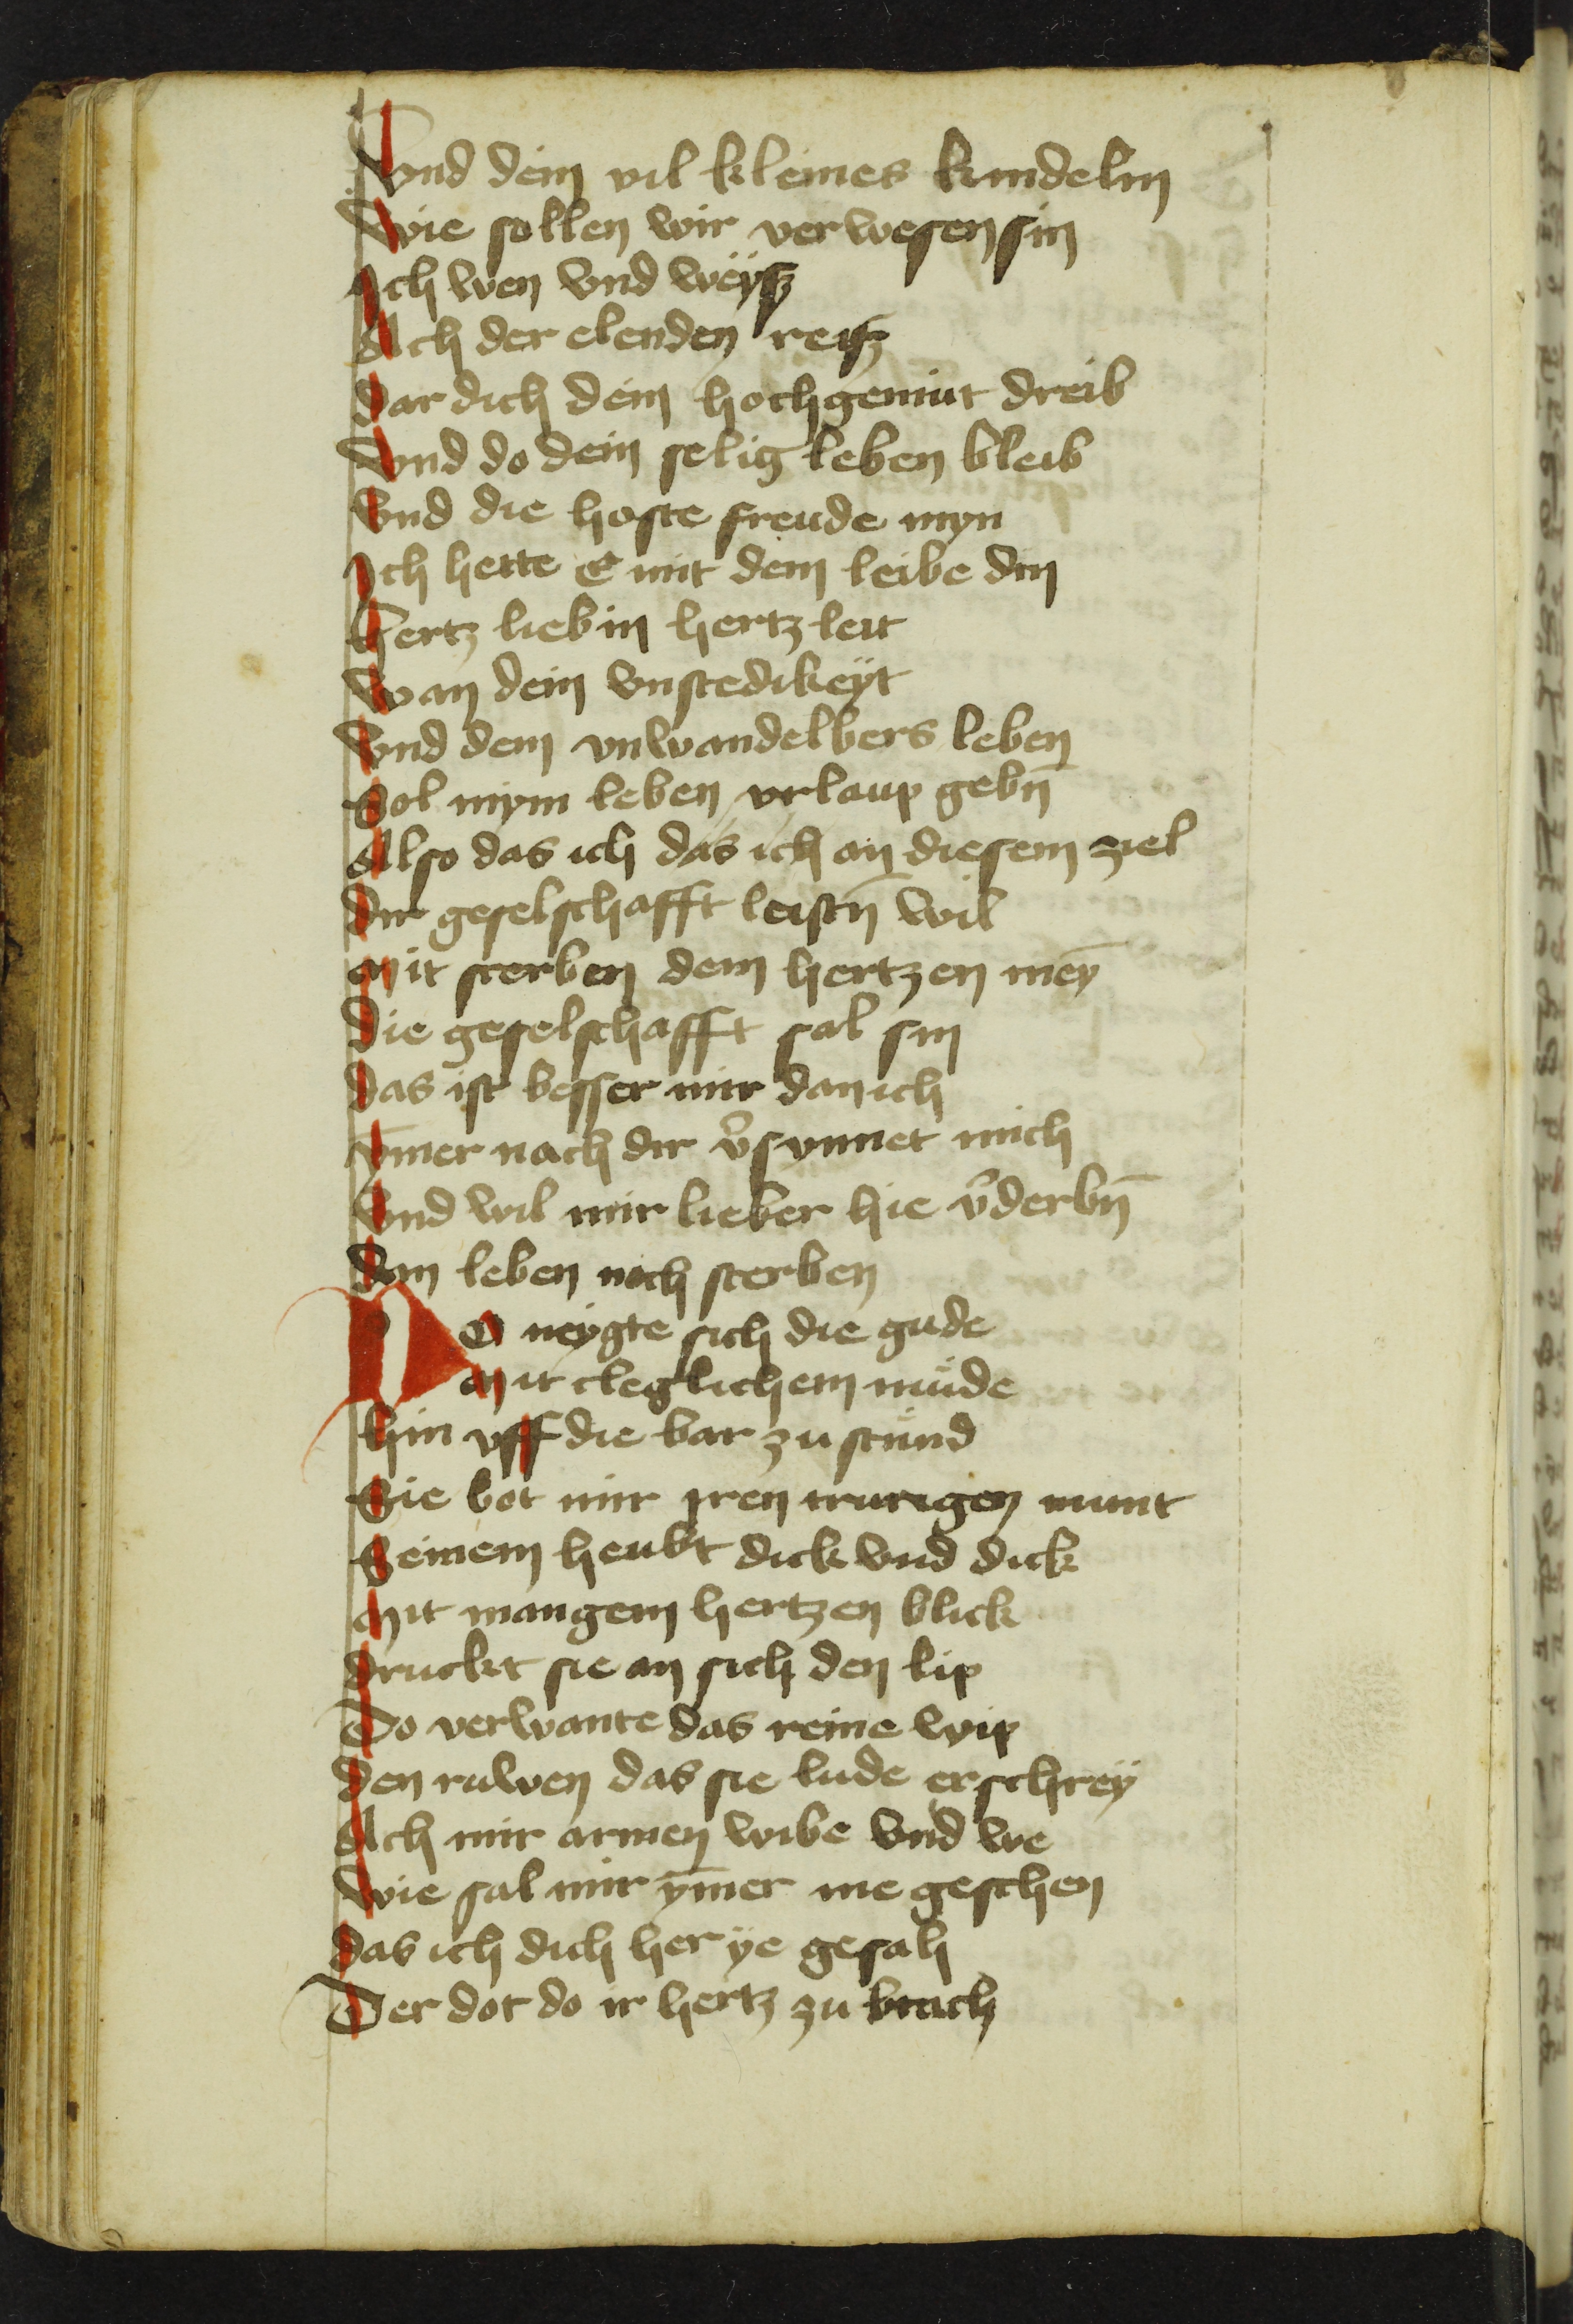 Vnd dein vil kleines kindelin
Wie sollen wir verwesen sin
Ich wen vnd weÿsz
Ach der elenden reisz
dar dich dein hochgemüt dreib
Vnd do dein selig leben bleib
Vnd die hoste freude myn
Ich hette E mit dem leibe din
Hertz lieb in hertz leit
Wan dein vnstedikeÿt
Vnd dein vnwandelbers leben
Sol mym leben vrlaup gebn̄
Also das ich das ich an diesem ziel
dir geselschafft leistn̄ wil
Mit sterben dem hertzen meȳ
Die geselschafft sal sin
das ist besser mir dan ich
ȳmer nach dir v̉synnet mich
Vnd wil mir lieber hie v̉derbn̄
dan leben noch sterben
DO neÿgte sich die gude
Mit cleglichem müde
hin vff die bar zu stünd
Sie bot mir iren trurigen munt
Seinem heubt dick vnd dick
Mit mangem hertzen blick
druckt sie an sich den lip
Do verwante das reine wip
den ruwen das sie lude erschreÿ
Ach mir armen wibe vnd we
Wie sal mir ȳmer me geschen
das ich dich her ÿe gesah
Der dot do ir hertz zu brach